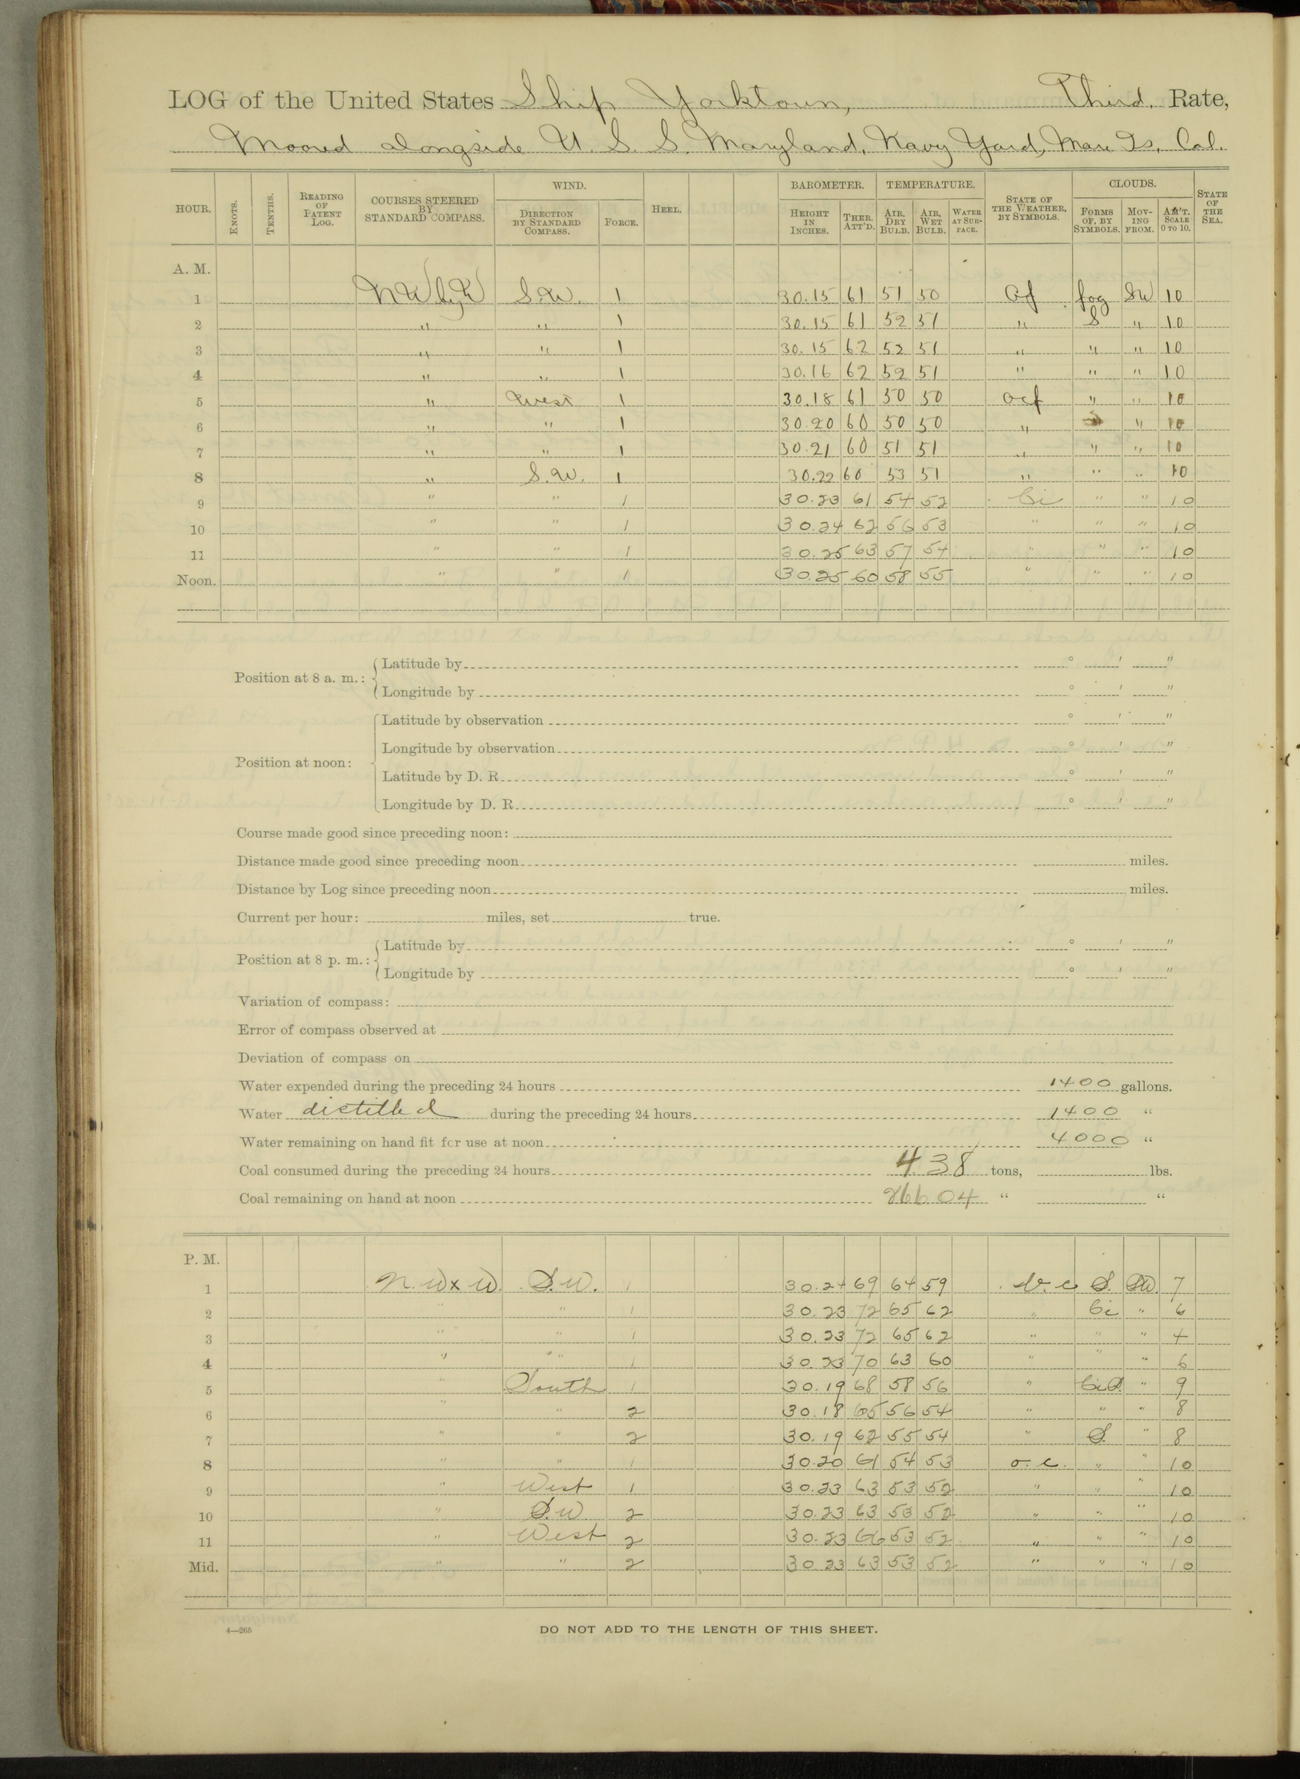 LOG of the United States Ship Yorktown, Third Rate,
Moored alongside U. S. S. Maryland, Navy Yard, Mare Is. Cal.
HOUR. KNOTS. TENTHS. READING OF PATENT LOG. COURSES STEERED BY STANDARD COMPASS. WIND. DIRECTION BY STANDARD COMPASS. FORCE. HEEL. BAROMETER. HEIGHT IN INCHES. THER. ATT'D. TEMPERATURE. AIR, DRY BULB. AIR, WET BULB. WATER AT SURFACE. STATE OF THE WEATHER, BY SYMBOLS. CLOUDS. FORMS OF, BY SYMBOLS. MOVING FROM. AM'T. SCALE 0 TO 10. STATE OF THE SEA.
A. M.
1 NW by W S.W. 1 30.15 61 51 50 of fog SW 10
2 " " 1 30.15 61 52 51 " S " 10
3 " " 1 30.15 62 52 51 " " " 10
4 " " 1 30.16 62 52 51 " " " 10
5 " West 1 30.18 61 50 50 ocf " " 10
6 " " 1 30.20 60 50 50 " " 10
7 " " 1 30.21 60 51 51 " " " 10
8 " S.W. 1 30.22 60 53 51 " " " 10
9 " " 1 30.23 61 54 52 " " 10
10 " " 1 30.24 62 56 53 " " " 10
11 " " 1 30.25 63 57 54 " " " 10
Noon. " " 1 30.25 60 58 55 " " " 10
Position at 8 a. m.: Latitude by ° ' "
Longitude by ° ' "
Position at noon: Latitude by observation ° ' "
Longitude by observation ° ' "
Latitude by D. R. ° ' "
Longitude by D. R. ° ' "
Course made good since preceding noon:
Distance made good since preceding noon miles.
Distance by Log since preceding noon miles.
Current per hour: miles, set true.
Position at 8 p. m.: Latitude by ° ' "
Longitude by ° ' "
Variation of compass:
Error of compass observed at
Deviation of compass on
Water expended during the preceding 24 hours 1400 gallons.
Water distilled during the preceding 24 hours 1400 "
Water remaining on hand fit for use at noon 4000 "
Coal consumed during the preceding 24 hours 4 38 tons, lbs.
Coal remaining on hand at noon 266 04 " "
P. M.
1 N. W x W. S.W. 1 30.24 69 64 59 b. c S. SW. 7
2 " " 1 30.23 72 65 62 " Ci " 6
3 " " 1 30.23 72 65 62 " " " 4
4 " " 1 30.23 70 63 60 " " " 6
5 " South 1 30.19 68 58 56 " Ci S. " 9
6 " " 2 30.18 65 56 54 " " " 8
7 " " 2 30.19 62 55 54 " S. " 8
8 " " 1 30.20 61 54 53 o. c. " " 10
9 " West 1 30.23 63 53 52 " " " 10
10 " S.W. 2 30.23 63 53 52 " " " 10
11 " West 2 30.23 66 53 52 " " " 10
Mid. " " 2 30.23 63 53 52 " " " 10
4—265 DO NOT ADD TO THE LENGTH OF THIS SHEET.